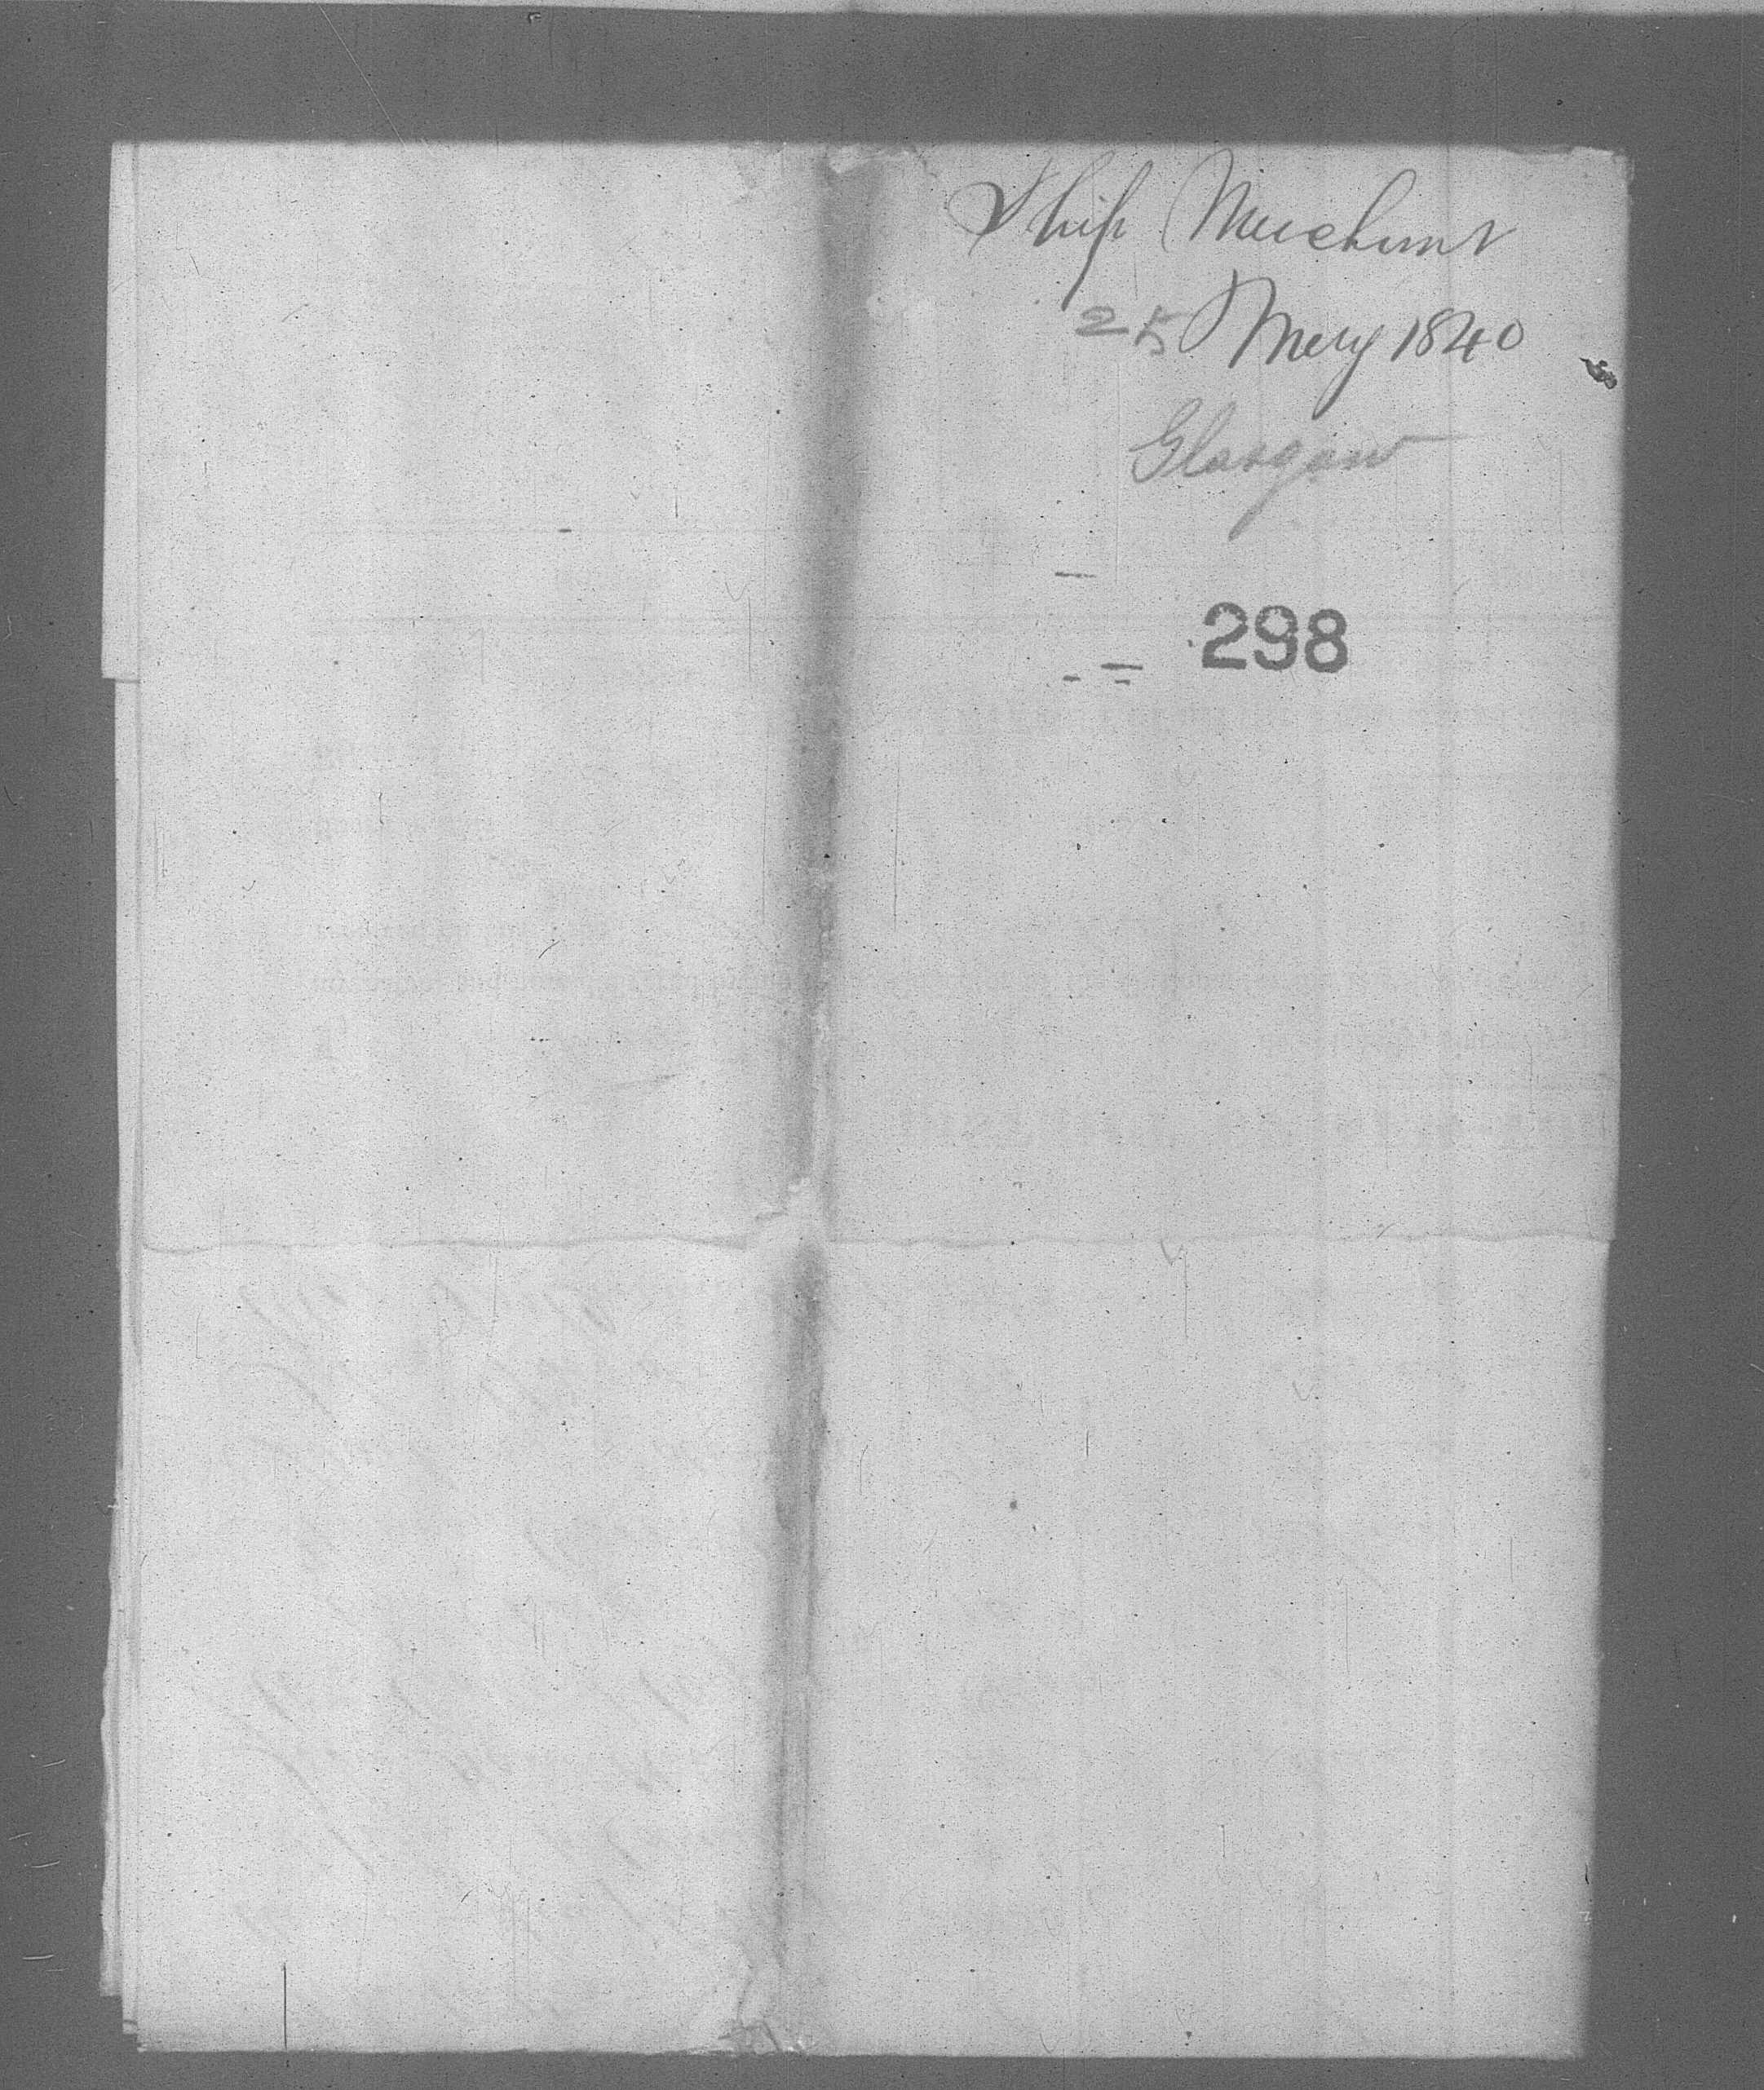 Ship Merchant
25 May 1840
Glasgow
298